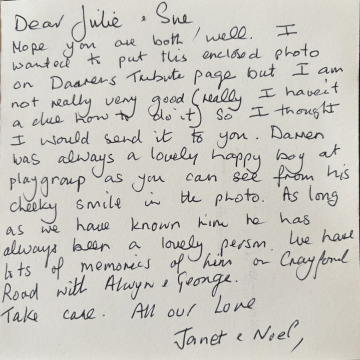 Dear Julie & Sue
Hope you are both well. I
wanted to put this enclosed photo
on Darrens Tribute page but I am
not really very good (really I haven't
a clue how to do it) so I thought
I would send it to you. Darren
was always a lovely happy boy at
playgroup as you can see from his
cheeky smile in the photo. As long
as we have known him he has
always been a lovely person. We have
lots of memories of him on Crayford
Road with Alwyn & George.
Take care. All our Love
Janet & Noel,